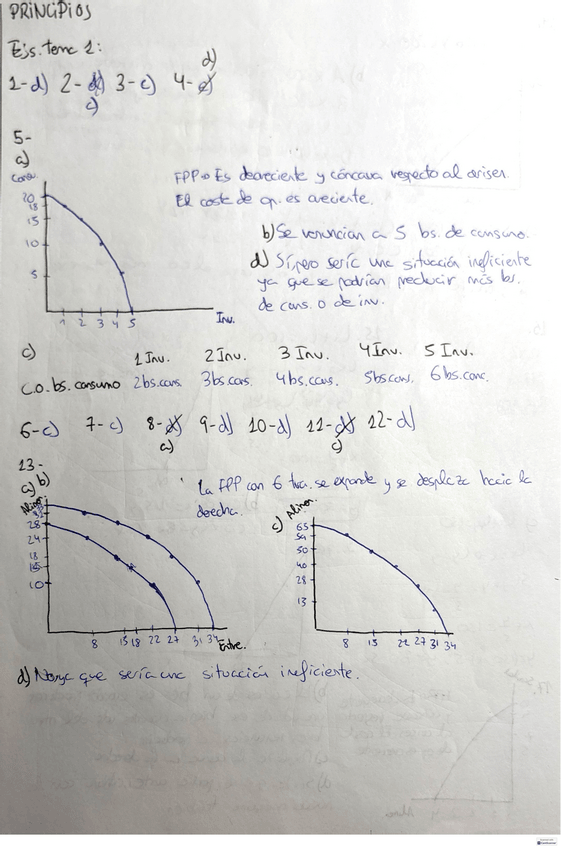 PRINCIPIOS
Ejs. tema 1:
d)
1-d) 2-d) 3-c) 4-c)
c)
5-
a)
Cons.
20
18
15
10
5
1 2 3 4 5 Inv.
FPP → Es decreciente y cóncava respecto al origen.
El coste de op. es creciente.
b) Se renuncian a 5 bs. de consumo.
d) Sí, pero sería una situación ineficiente
ya que se podrían producir más bs.
de cons. o de inv.
c) 1 Inv. 2 Inv. 3 Inv. 4 Inv. 5 Inv.
C.O. bs. consumo 2 bs. cons. 3 bs. cons. 4 bs. cons. 5 bs cons. 6 bs. cons.
6-c) 7-c) 8-d) 9-d) 10-d) 11-d) 12-d)
a) c)
13-
a) b)
La FPP con 6 tra. se expande y se desplaza hacia la
derecha.
Alimen.
28
24
18
10
8 15 18 22 27 31 34 Entre.
c) Alimen.
65
59
50
40
28
13
8 15 22 27 31 34
d) No, ya que sería una situación ineficiente.